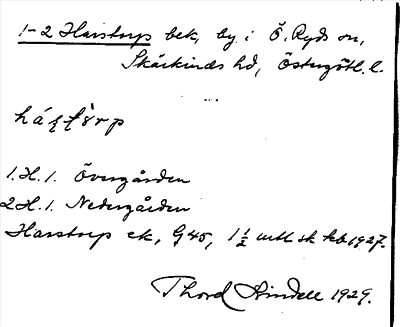 1-2 Harstorp bek, by i Ö. Ryds sn,
Skärkinds hd, Östergötl. l.
1.H.1. Övergården
2H.1. Nedergården
Harstorp ek, G45, 1 1/2 mtl sk 1927.
Thord Lindell 1929.